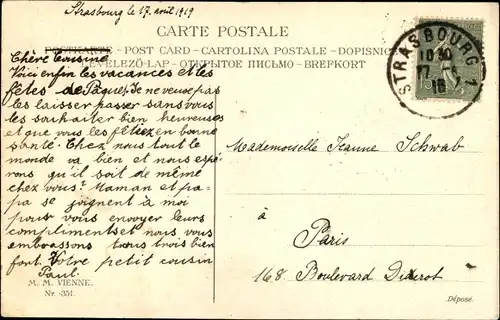 Strasbourg le 17 avril 1919
CARTE POSTALE
POSTKARTE - POST CARD - CARTOLINA POSTALE - DOPISNICE
LEVELEZŐ-LAP - ОТКРЫТОЕ ПИСЬМО - BREFKORT
STRASBOURG 1
Chère Cousine
Voici enfin les vacances et les
fêtes de Pâques. Je ne veux pas
les laisser passer sans vous
les souhaiter bien heureuses
et que vous les fêtiez en bonne
santé. Chez nous tout le
monde va bien et nous espé-
rons qu'il soit de même
chez vous? Maman et pa-
pa se joignent à moi
pour vous envoyer leurs
compliments et nous vous
embrassons tous trois bien
fort. Votre petit cousin
Paul.
M. M. VIENNE.
Nr. 351.
Mademoiselle Jeanne Schwab
à
Paris
168 Boulevard Diderot
Déposé.